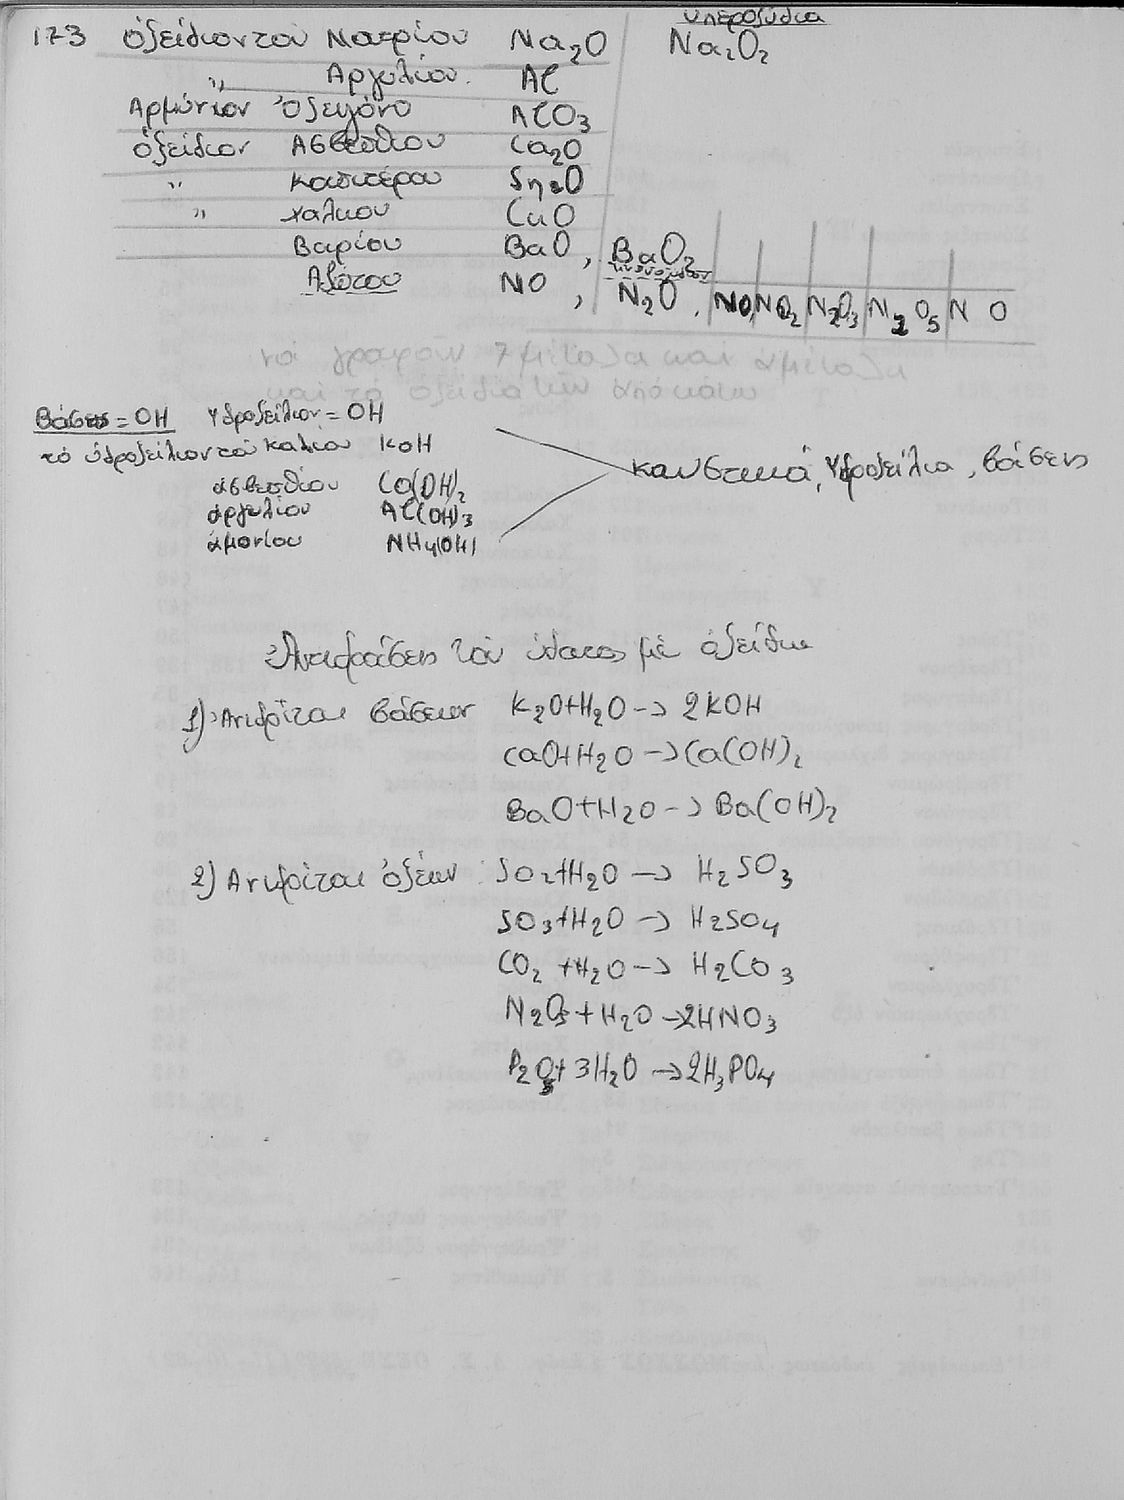 υπεροξύδια
173 ὀξείδιον τοῦ Νατρίου Na2O Na2O2
〃 Αργιλίου. Al
Αρμώνιον ὀξυγόνο AlO3
ὀξείδιον Ασβεστίου Ca2O
〃 κασσιτέρου Sn2O
〃 χαλκου CuO
Βαρίου BaO, BaO2
Αζώτου NO, N2O, NO, NO2 N2O3 N2O5 N O
νά γραφοῦν 7 μέταλα και ἀμέταλα
και τά ὀξείδια των ἀποκάτω
Βάσεις = OH Υδροξείλιον = OH
τό ὑδροξείλιον του Καλιου KOH
ασβεστίου Ca(OH)2
ἀργιλίου Al(OH)3
ἀμονίου NH4(OH)
καυστικά, Υδροξείλια, βάσεις
Αντιδράσεις τοῦ ὕδατος μὲ ὀξείδια
1) Αντιδρῖται βάσεων K2O+H2O → 2KOH
CaO+H2O → Ca(OH)2
BaO+H2O → Ba(OH)2
2) Αντιδρῖται ὀξέων SO2+H2O → H2SO3
SO3+H2O → H2SO4
CO2+H2O → H2CO3
N2O5+H2O → 2HNO3
P2O5+3H2O → 2H3PO4